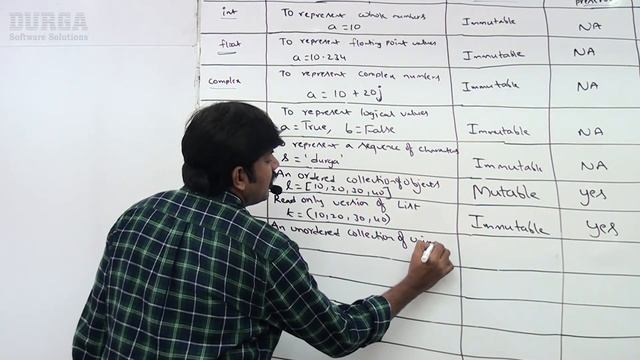 DURGA
Software Solutions
int
To represent whole numbers
a=10
Immutable
NA
float
To represent floating point values
a=10.234
Immutable
NA
complex
To represent complex numbers
a = 10 + 20j
Immutable
NA
To represent logical values
a = True, b = False
Immutable
NA
represent a sequence of characters
s = 'durga'
Immutable
NA
An ordered collection of objects
l = [10,20,30,40]
Mutable
yes
Read only version of List
t = (10,20,30,40)
Immutable
yes
An unordered collection of